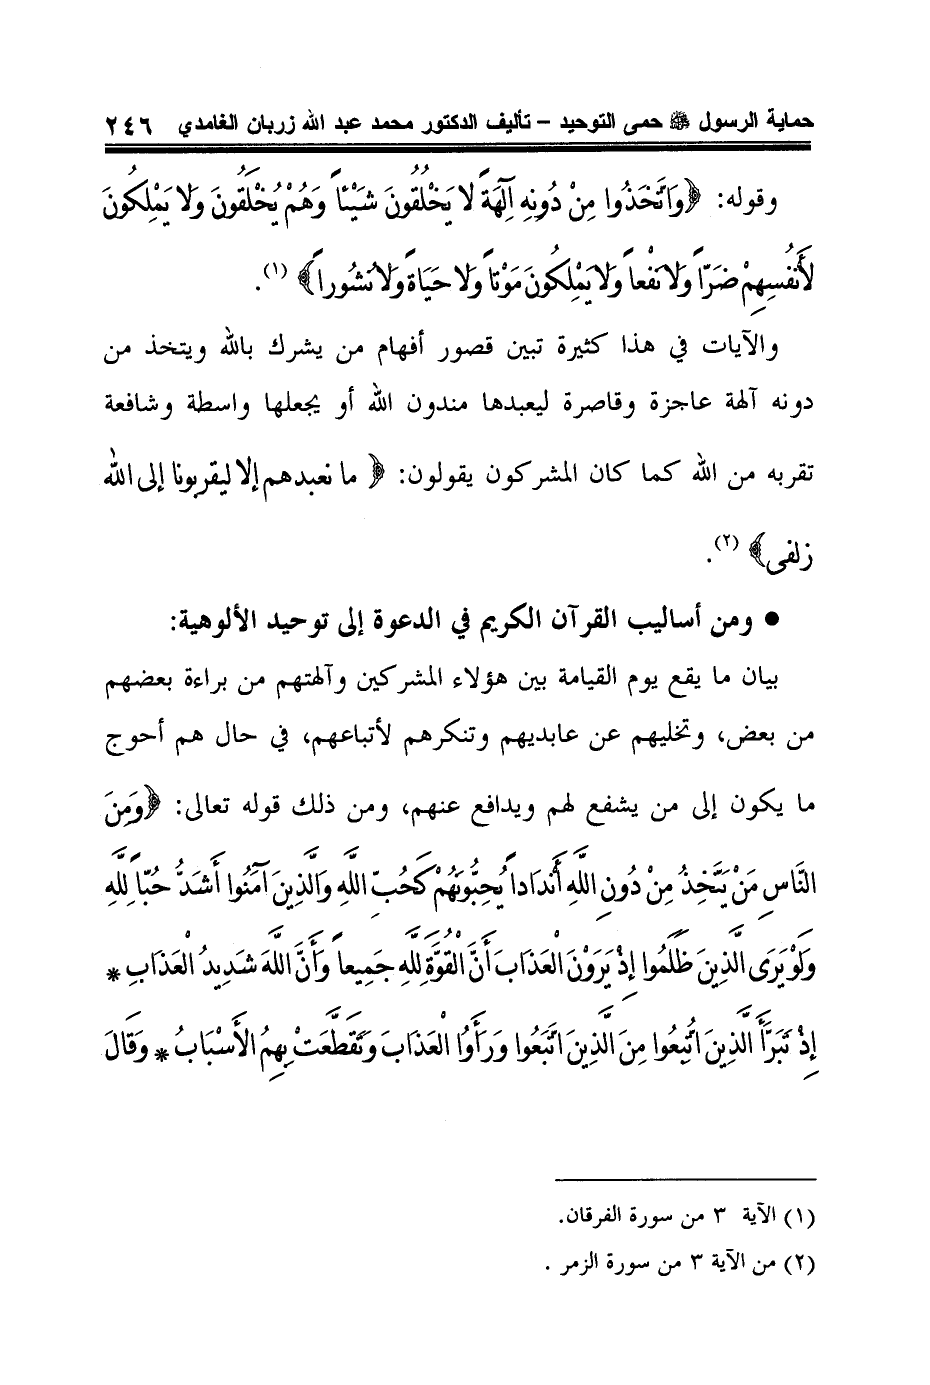 حماية الرسول ﷺ حمى التوحيد – تأليف الدكتور محمد عبد الله زربان الغامدي ٢٤٦
وقوله: ﴿وَاتَّخَذُوا مِنْ دُونِهِ آلِهَةً لا يَخْلُقُونَ شَيْئاً وَهُمْ يُخْلَقُونَ وَلا يَمْلِكُونَ
لأَنْفُسِهِمْ ضَرّاً وَلا نَفْعاً وَلا يَمْلِكُونَ مَوْتاً وَلا حَيَاةً وَلا نُشُوراً﴾ (١).
والآيات في هذا كثيرة تبين قصور أفهام من يشرك بالله ويتخذ من
دونه آلهة عاجزة وقاصرة ليعبدها مندون الله أو يجعلها واسطة وشافعة
تقربه من الله كما كان المشركون يقولون: ﴿ ما نعبدهم إلا ليقربونا إلى الله
زلفى﴾ (٢).
● ومن أساليب القرآن الكريم في الدعوة إلى توحيد الألوهية:
بيان ما يقع يوم القيامة بين هؤلاء المشركين وآلهتهم من براءة بعضهم
من بعض، وتخليهم عن عابديهم وتنكرهم لأتباعهم، في حال هم أحوج
ما يكون إلى من يشفع لهم ويدافع عنهم، ومن ذلك قوله تعالى: ﴿وَمِنَ
النَّاسِ مَنْ يَتَّخِذُ مِنْ دُونِ اللَّهِ أَنْدَاداً يُحِبُّونَهُمْ كَحُبِّ اللَّهِ وَالَّذِينَ آمَنُوا أَشَدُّ حُبّاً لِلَّهِ
وَلَوْ يَرَى الَّذِينَ ظَلَمُوا إِذْ يَرَوْنَ الْعَذَابَ أَنَّ الْقُوَّةَ لِلَّهِ جَمِيعاً وَأَنَّ اللَّهَ شَدِيدُ الْعَذَابِ *
إِذْ تَبَرَّأَ الَّذِينَ اتُّبِعُوا مِنَ الَّذِينَ اتَّبَعُوا وَرَأَوُا الْعَذَابَ وَتَقَطَّعَتْ بِهِمُ الأَسْبَابُ * وَقَالَ
(١) الآية ٣ من سورة الفرقان.
(٢) من الآية ٣ من سورة الزمر .